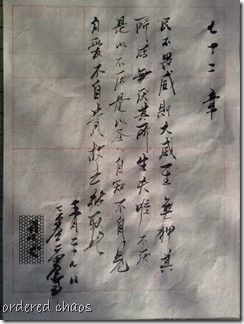 七十二章
民不畏威則大威至無狎其
所居無厭其所生夫唯不厭
是以不厭是以圣人自知不自見
自愛不自貴故去彼取此
ordered chaos